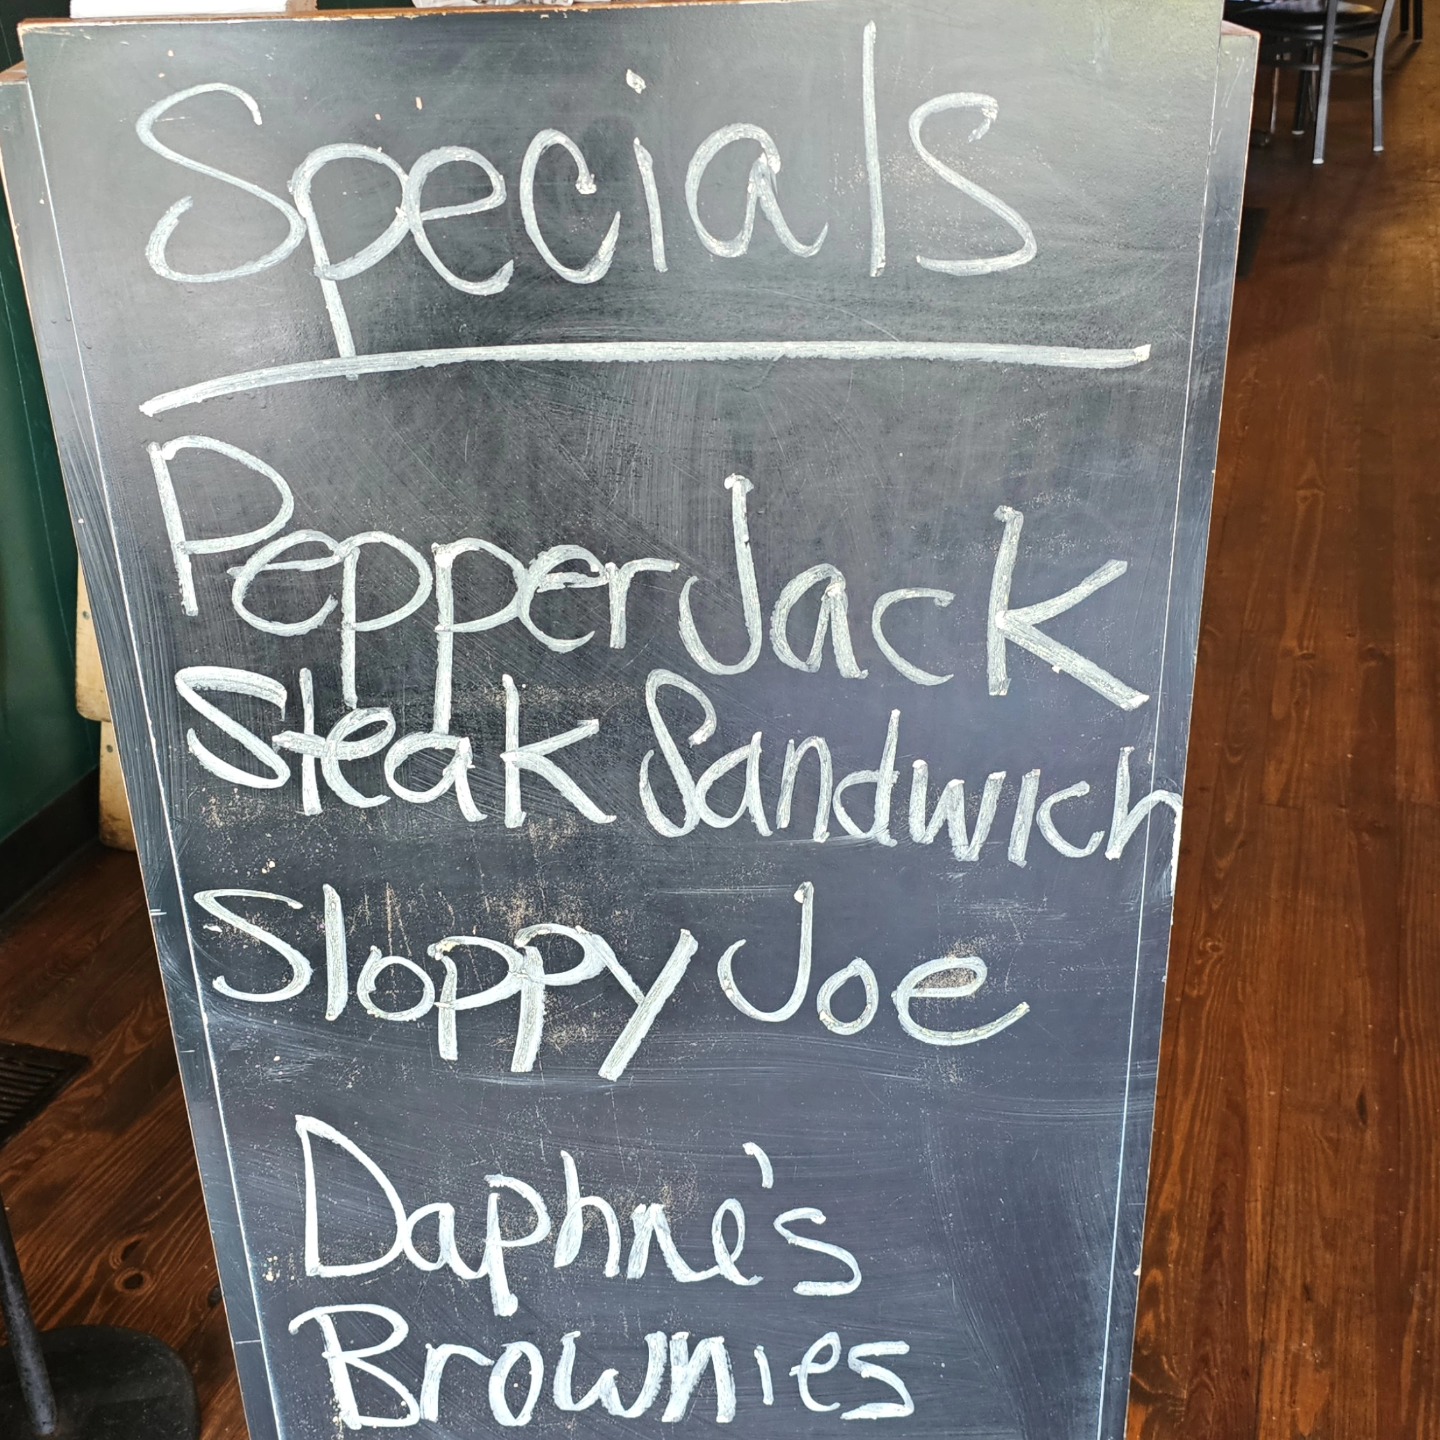 Specials
Pepper Jack
Steak Sandwich
Sloppy Joe
Daphne's
Brownies